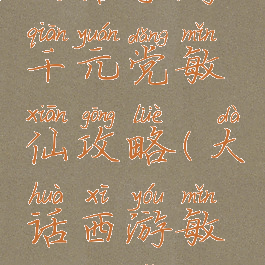 qiān yuán dǎng mǐn
千元党敏
xiān gōng lüè dà
仙攻略(大
huà xī yóu mǐn
话西游敏